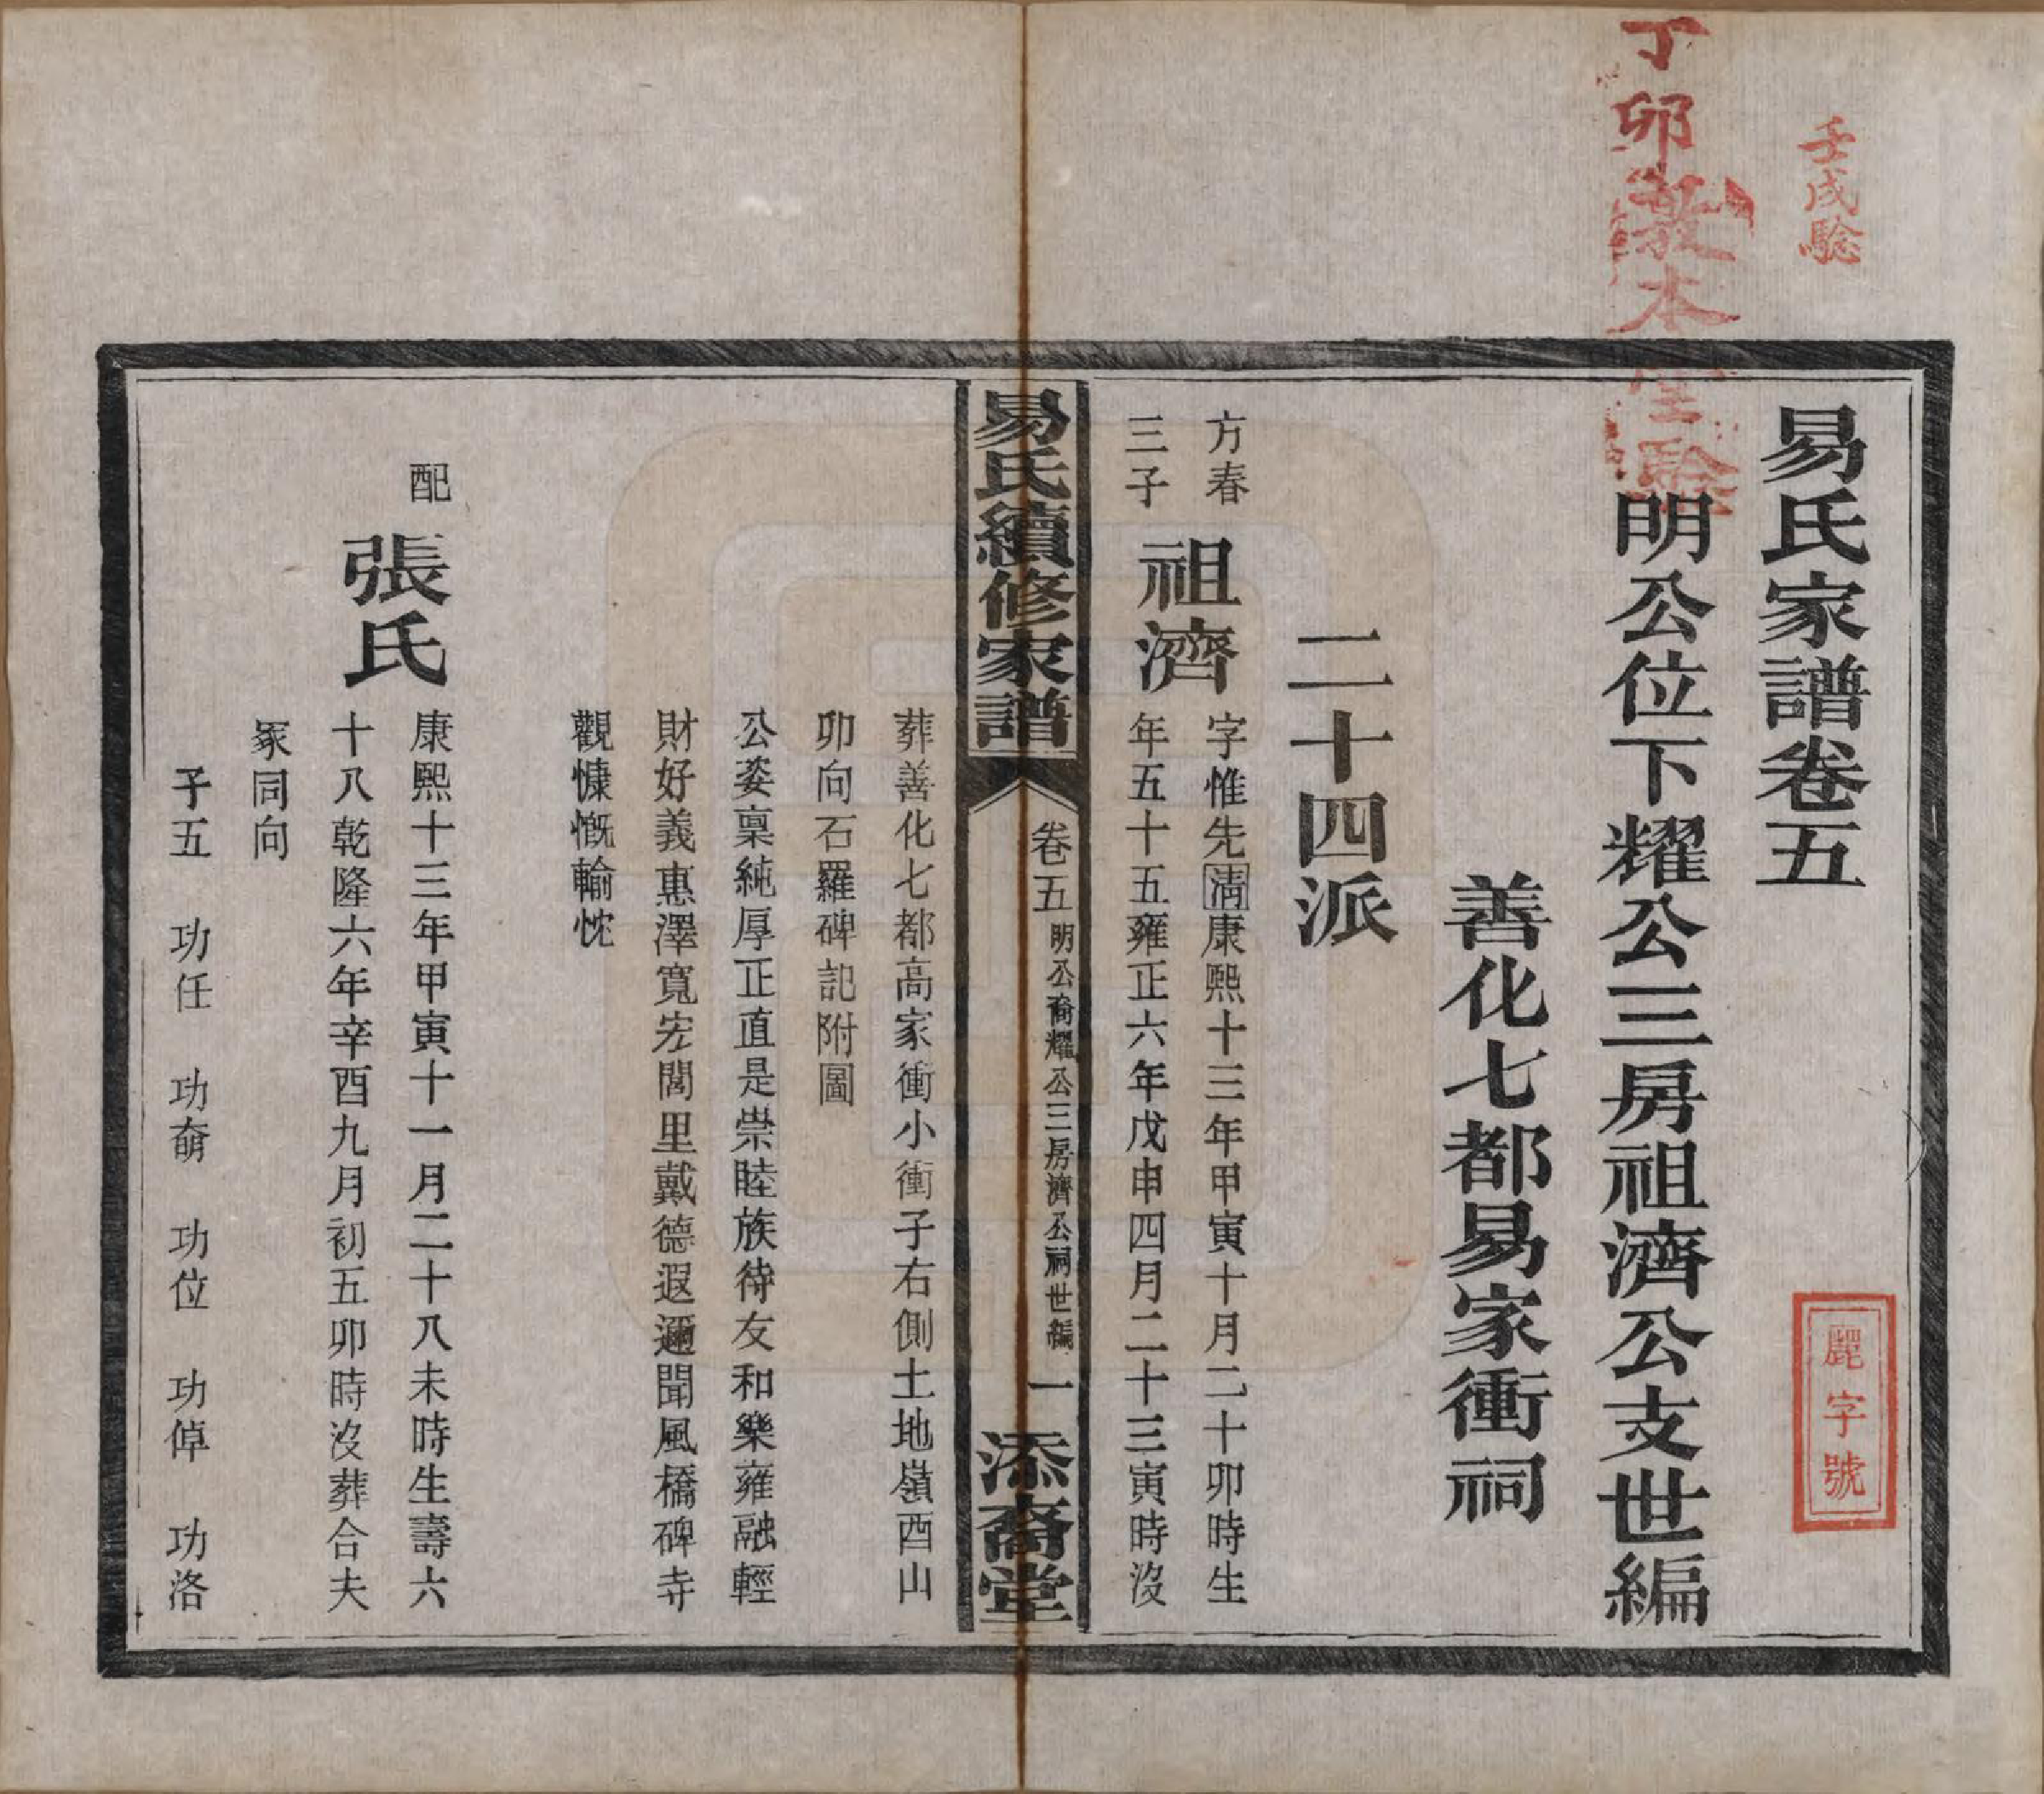 壬戌驗
丁卯敦本堂驗
易氏家譜卷五
麗字號
明公位下耀公三房祖濟公支世編
善化七都易家衝祠
二十四派
方春
三子
祖濟
字惟先清康熙十三年甲寅十月二十卯時生
年五十五雍正六年戊申四月二十三寅時沒
易氏續修家譜
卷五
明公裔耀公三房濟公祠世編
一
添裔堂
葬善化七都高家衝小衝子右側土地嶺酉山
卯向石羅碑記附圖
公姿稟純厚正直是崇睦族待友和樂雍融輕
財好義惠澤寬宏閭里戴德遐邇聞風橋碑寺
觀慷慨輸忱
配
張氏
康熙十三年甲寅十一月二十八未時生壽六
十八乾隆六年辛酉九月初五卯時沒葬合夫
冢同向
子五 功任 功奟 功位 功倬 功洛